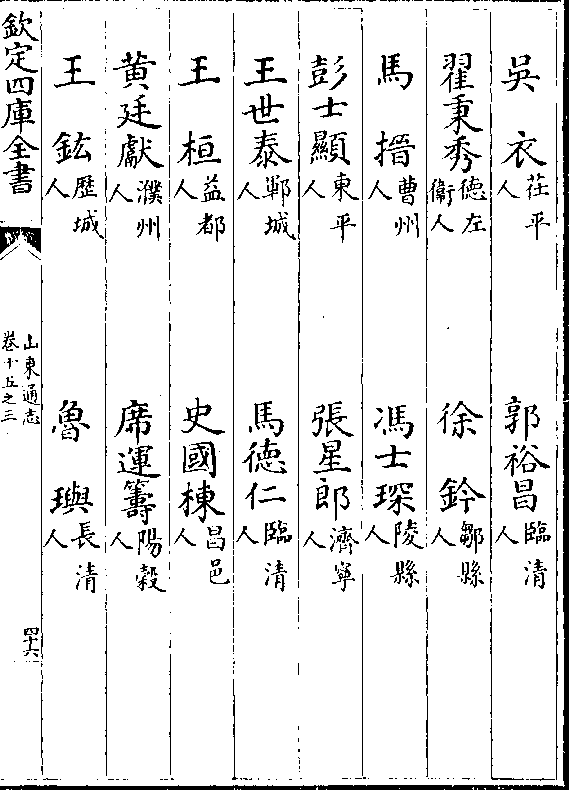 吳衣茌平人 郭裕昌臨清人
翟秉秀德左衛人 徐鈐鄒縣人
馬搢曹州人 馮士琛陵縣人
彭士顯東平人 張星郎濟寧人
王世泰鄆城人 馬德仁臨清人
王桓益都人 史國棟昌邑人
黄廷獻濮州人 席運籌陽穀人
王鈜歴城人 魯璵長清人
欽定四庫全書 山東通志 卷十五之三 四十六